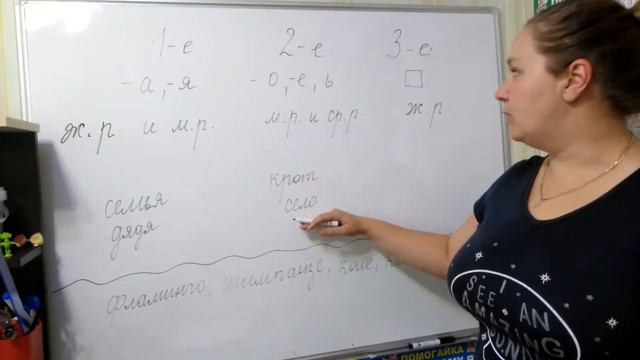 1-е 2-е 3-е
-а,-я -о,-е, ь □
ж.р и м.р. м.р. и ср.р. ж.р.
семья крот
дядя село
фламинго, шимпанзе, кафе,
I
SEE AN
AMAZING
ПОМОГАЙКА